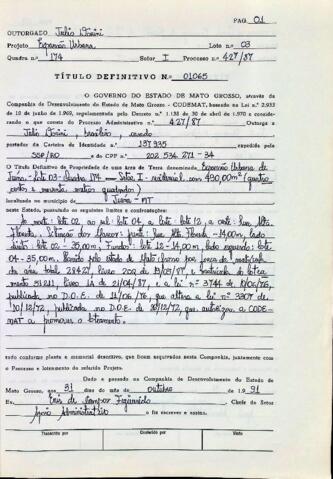 PAG. 01
OUTORGADO Julio Dorini
Projeto Expansão Urbana Lote n.º 03
Quadra n.º 174 Setor I Processo n.º 427/87
TÍTULO DEFINITIVO N.º 01065
O GOVERNO DO ESTADO DE MATO GROSSO, através da
Companhia de Desenvolvimento do Estado de Mato Grosso - CODEMAT, baseada na Lei n.º 2.933
de 10 de junho de 1969, regulamentada pelo Decreto n.º 1.138 de 30 de abril de 1970 e considerando
o que consta do Processo Administrativo n.º 427/87 Outorga a
Julio Dorini, brasileiro, casado
portador da Carteira de Identidade n.º 137935 expedida pela
SSP/RO e do CPF n.º 202 534 271-34
O Título Definitivo de Propriedade de uma área de Terra denominada Expansão Urbana de
Juína - lote 03 - Quadra 174 - Setor I - residencial, com 490,00m² (quatrocentos
e noventa metros quadrados)
localizada no município de Juína - MT
neste Estado, passando os seguintes limites e confrontações:
Ao norte: lote 02 ao sul: lote 04, a leste: lote 12, a oeste: Rua
frente: Rua - 14,00m, lado
direito: lote 02 - 35,00m, Fundos: lote 12 - 14,00m, lado esquerdo: lote
04 - 35,00m.
da área total 28421, livro 202
51211, livro 1A de 21/04/87, e a lei n.º 3744 de
publicada no D.O.E. de 11/06/76, que altera a lei n.º 3307 de
10/12/72, publicada no D.O.E. de 20/12/72, que autoriza a CODEMAT
a promover o loteamento.
tudo conforme planta e memorial descritivo, que ficam arquivados nesta Companhia, juntamente com
o Processo e loteamento do referido Projeto.
Dado e passado na Companhia de Desenvolvimento do Estado de
Mato Grosso, aos 31 dias do mês de outubro de 1991
Eu, Enis de Campos Figueiredo Chefe do Setor
Apoio Administrativo o fiz escrever e assino.
Transcrito por Conferido por Visto